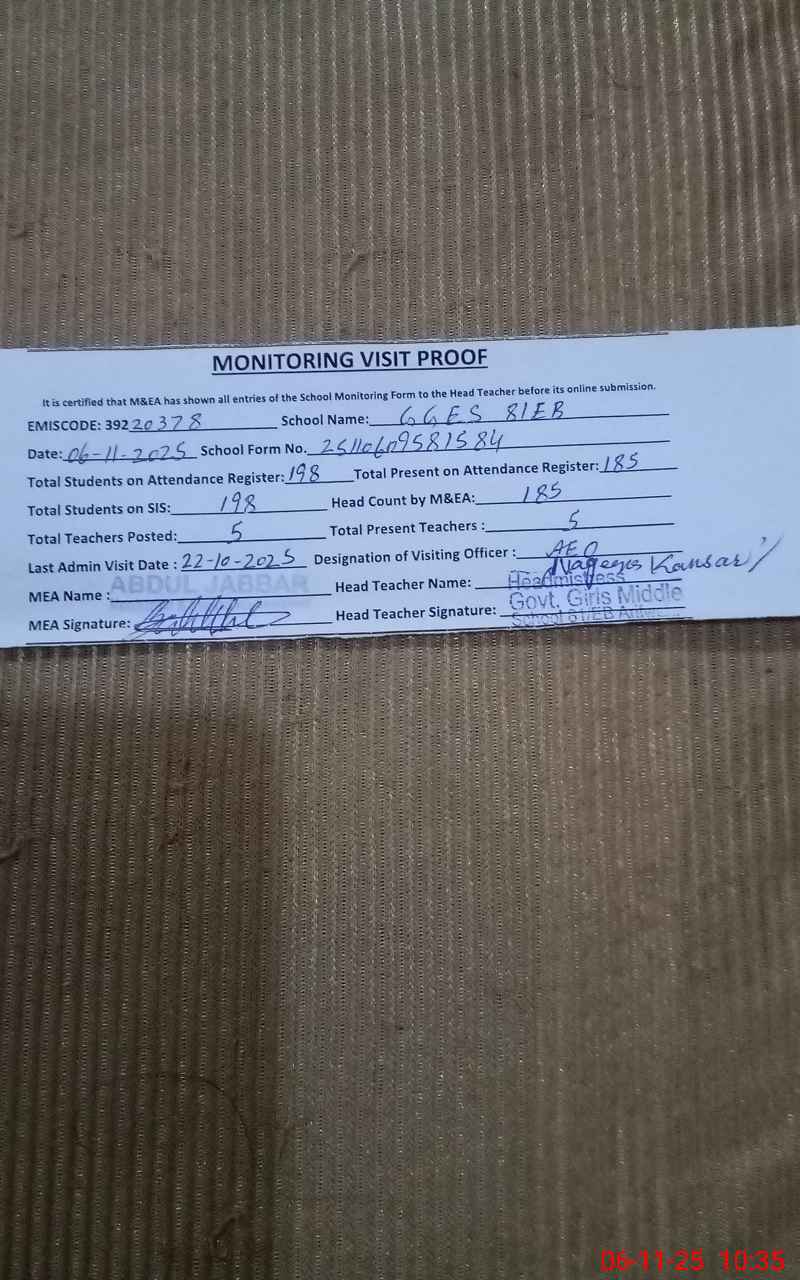 MONITORING VISIT PROOF
It is certified that M&EA has shown all entries of the School Monitoring Form to the Head Teacher before its online submission.
EMISCODE: 39220378 School Name: GGES 81EB
Date: 06-11-2025 School Form No.
Total Students on Attendance Register: 198 Total Present on Attendance Register: 185
Total Students on SIS: 198 Head Count by M&EA: 185
Total Teachers Posted: 5 Total Present Teachers : 5
Last Admin Visit Date : 22-10-2025 Designation of Visiting Officer : AEO
MEA Name : ABDUL JABBAR Head Teacher Name: Kansar
Headmistress
MEA Signature: Head Teacher Signature: Govt. Girls Middle
School 81/EB
06-11-25 10:35